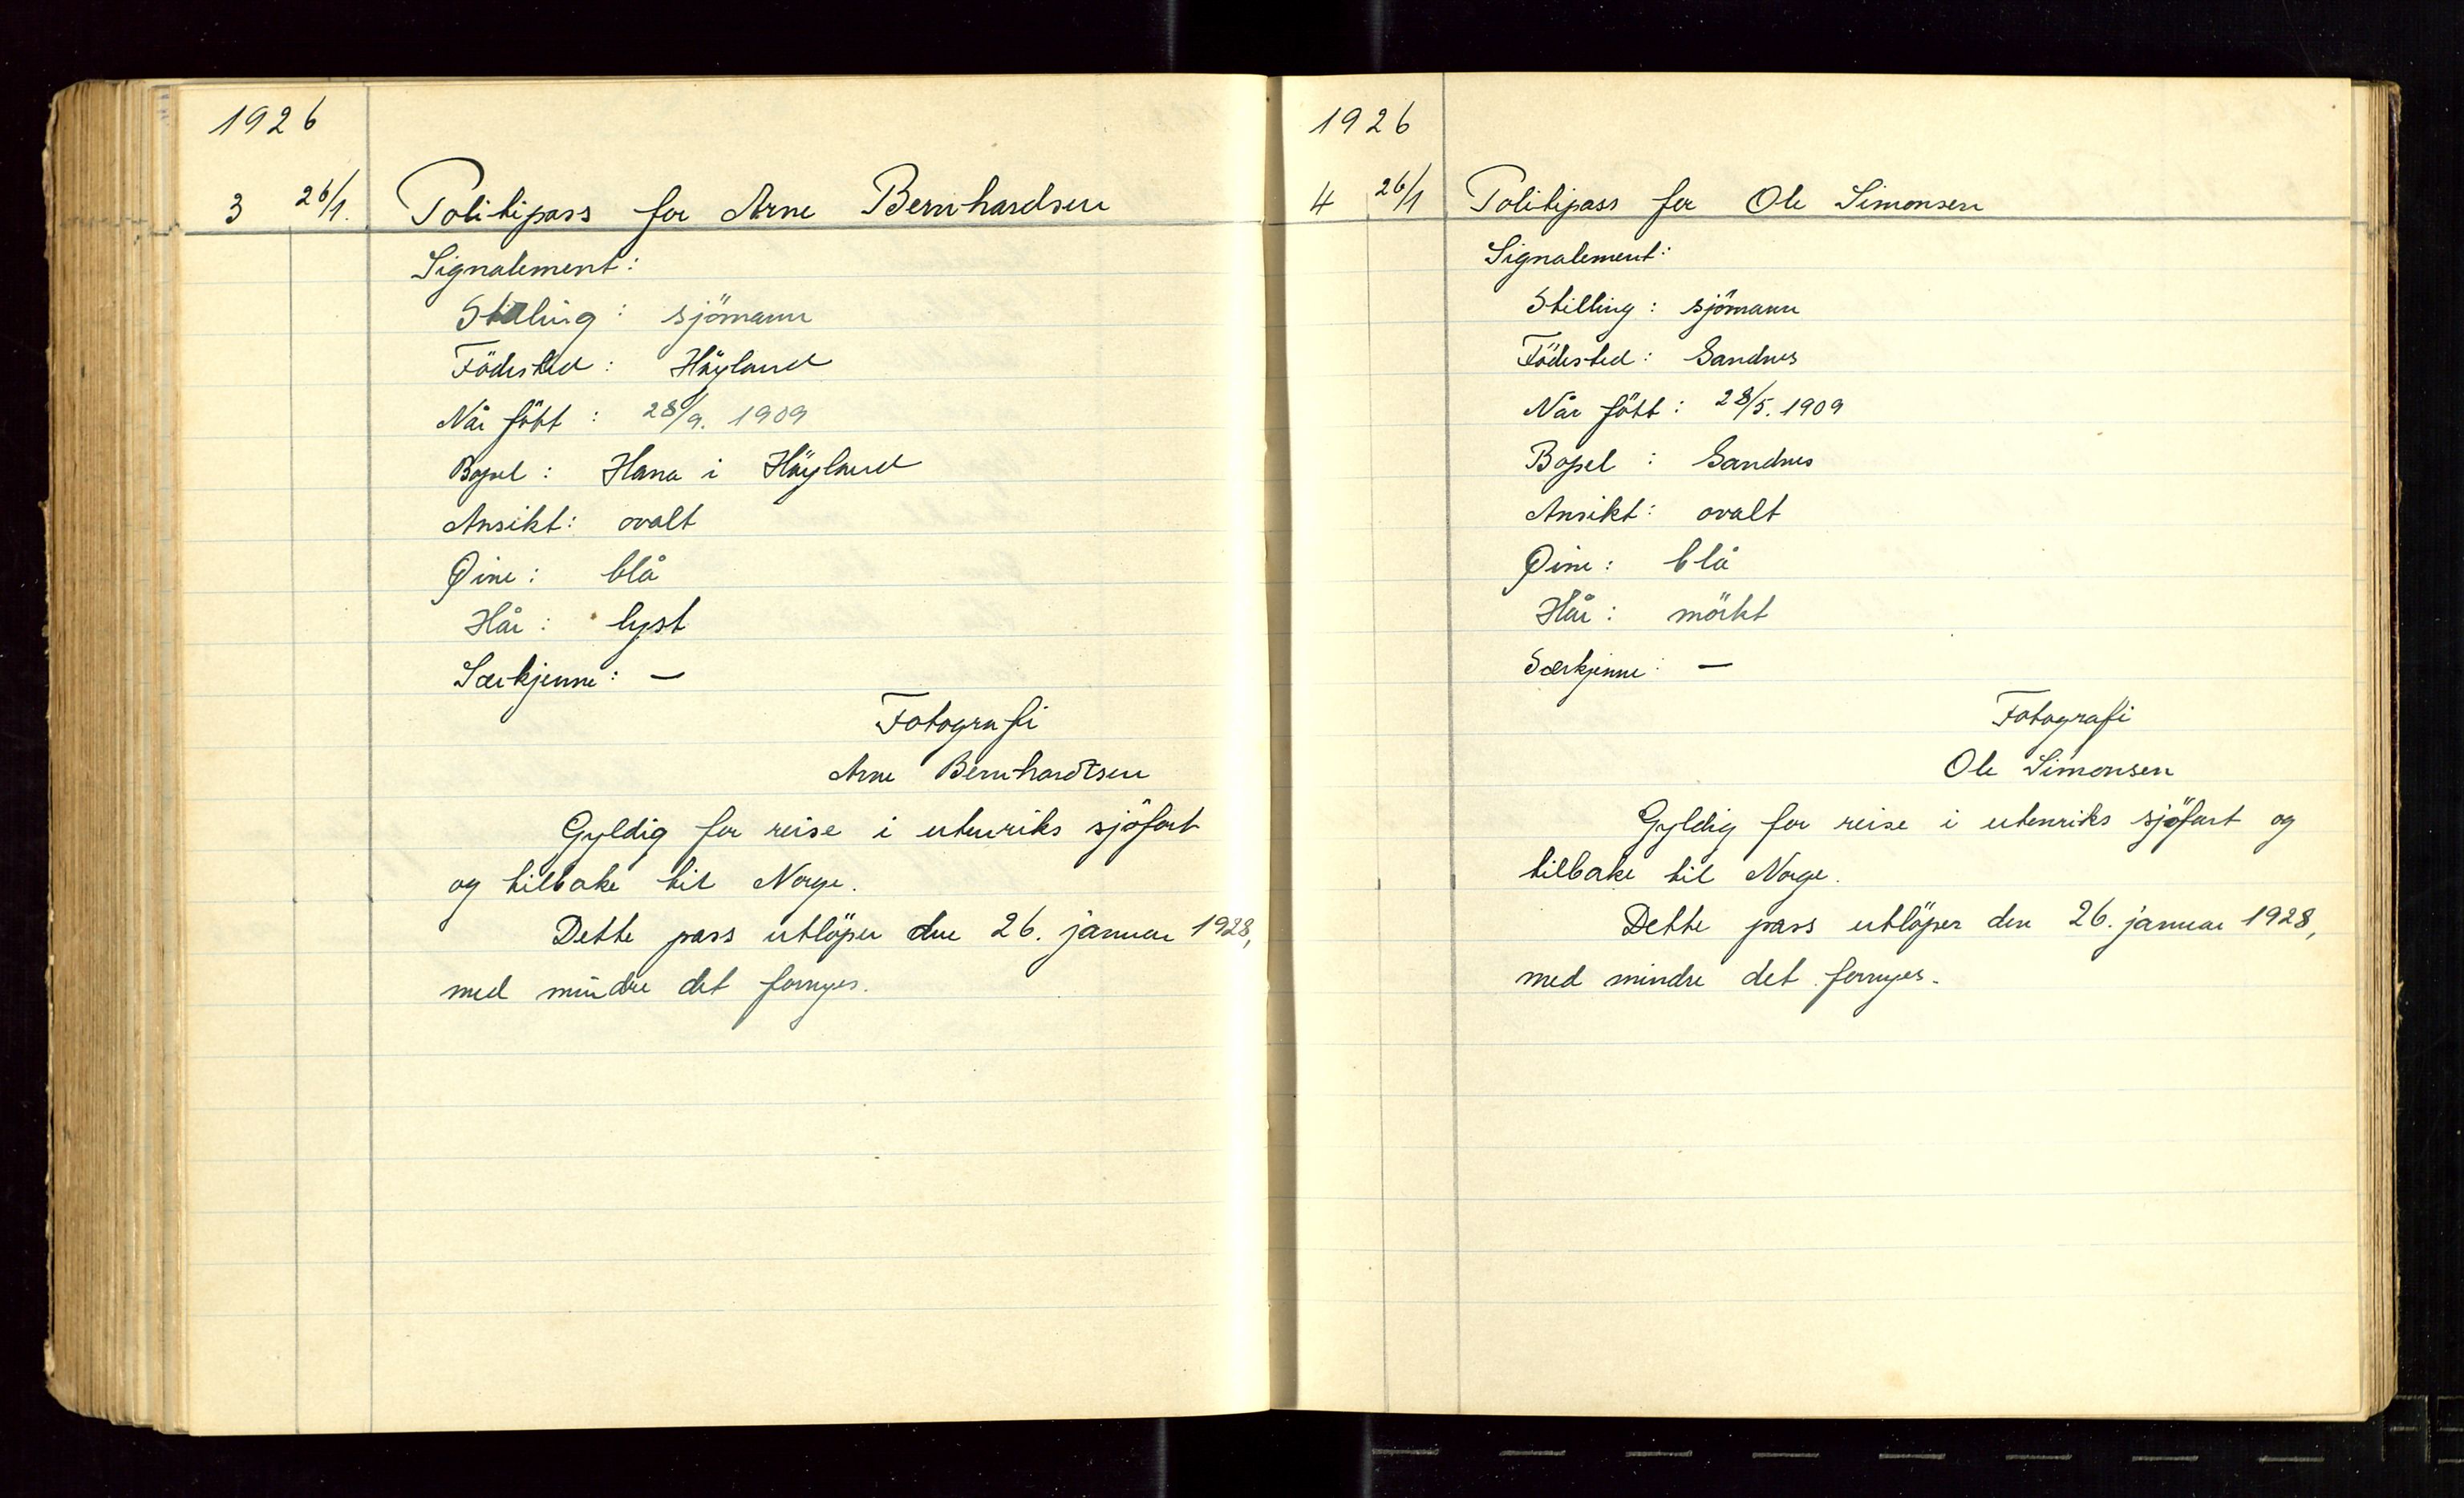 1926
3 26/1. Politipass for Arne Bernhardsen
Signalement:
Stilling: sjömann
Födested: Höyland
Når födt: 28/9. 1909
Bopel: Hana i Höyland
Ansikt: ovalt
Øine: blå
Hår: lyst
Særkjenne: —
Fotografi
Arne Bernhardtsen
Gyldig for reise i utenriks sjöfart
og tilbake til Norge.
Dette pass utlöper den 26. januar 1928,
med mindre det fornyes.
1926
4 26/1 Politipass for Ole Simonsen
Signalement:
Stilling: sjömann
Födested: Sandnes
Når födt: 28/5. 1909
Bopel: Sandnes
Ansikt: ovalt
Øine: blå
Hår: mörkt
Særkjenne: —
Fotografi
Ole Simonsen
Gyldig for reise i utenriks sjöfart og
tilbake til Norge.
Dette pass utlöper den 26. januar 1928,
med mindre det fornyes.